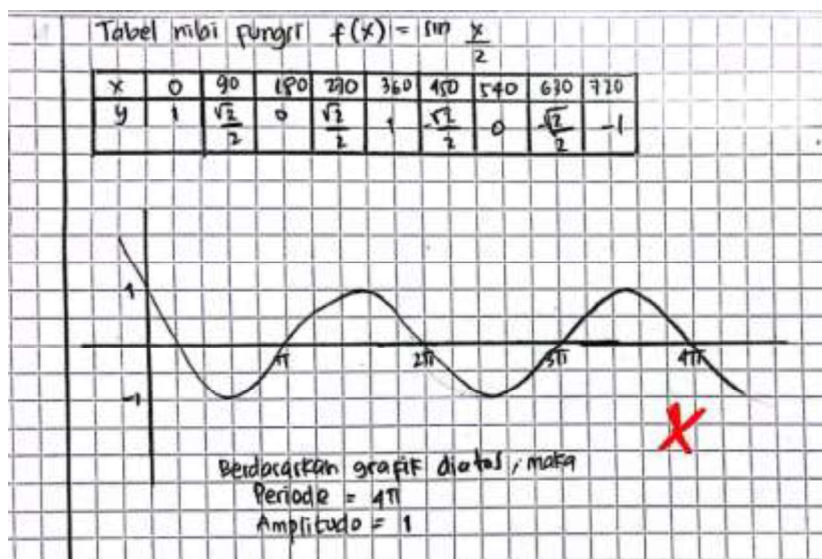 Tabel nilai fungsi f(x) = sin x/2
x 0 90 180 270 360 450 540 630 720
y 1 √2/2 0 √2/2 1 -√2/2 0 -√2/2 -1
1
π 2π 3π 4π
-1
Berdasarkan grafik diatas, maka
Periode = 4π
Amplitudo = 1